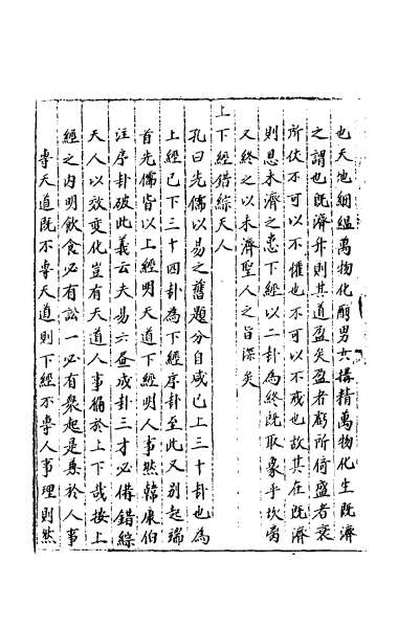 也天地絪縕萬物化醇男女搆精萬物化生既濟
之謂也既濟升則其道盈矣盈者虧所倚盛者衰
所伏不可以不懼也不可以不戒也故其在既濟
則思未濟之患下經以二卦為終既取象乎坎离
又終之以未濟聖人之旨深矣
上下經錯綜天人
孔曰先儒以易之舊題分自咸已上三十卦也為
上經已下三十四卦為下經序卦至此又別起端
首先儒皆以上經明天道下經明人事然韓康伯
注序卦破此義云夫易六畫成卦三才必備錯綜
天人以效變化豈有天道人事偏於上下哉按上
經之內明飲食必有訟訟必有衆起是兼於人事
專天道既不專天道則下經不專人事理則然